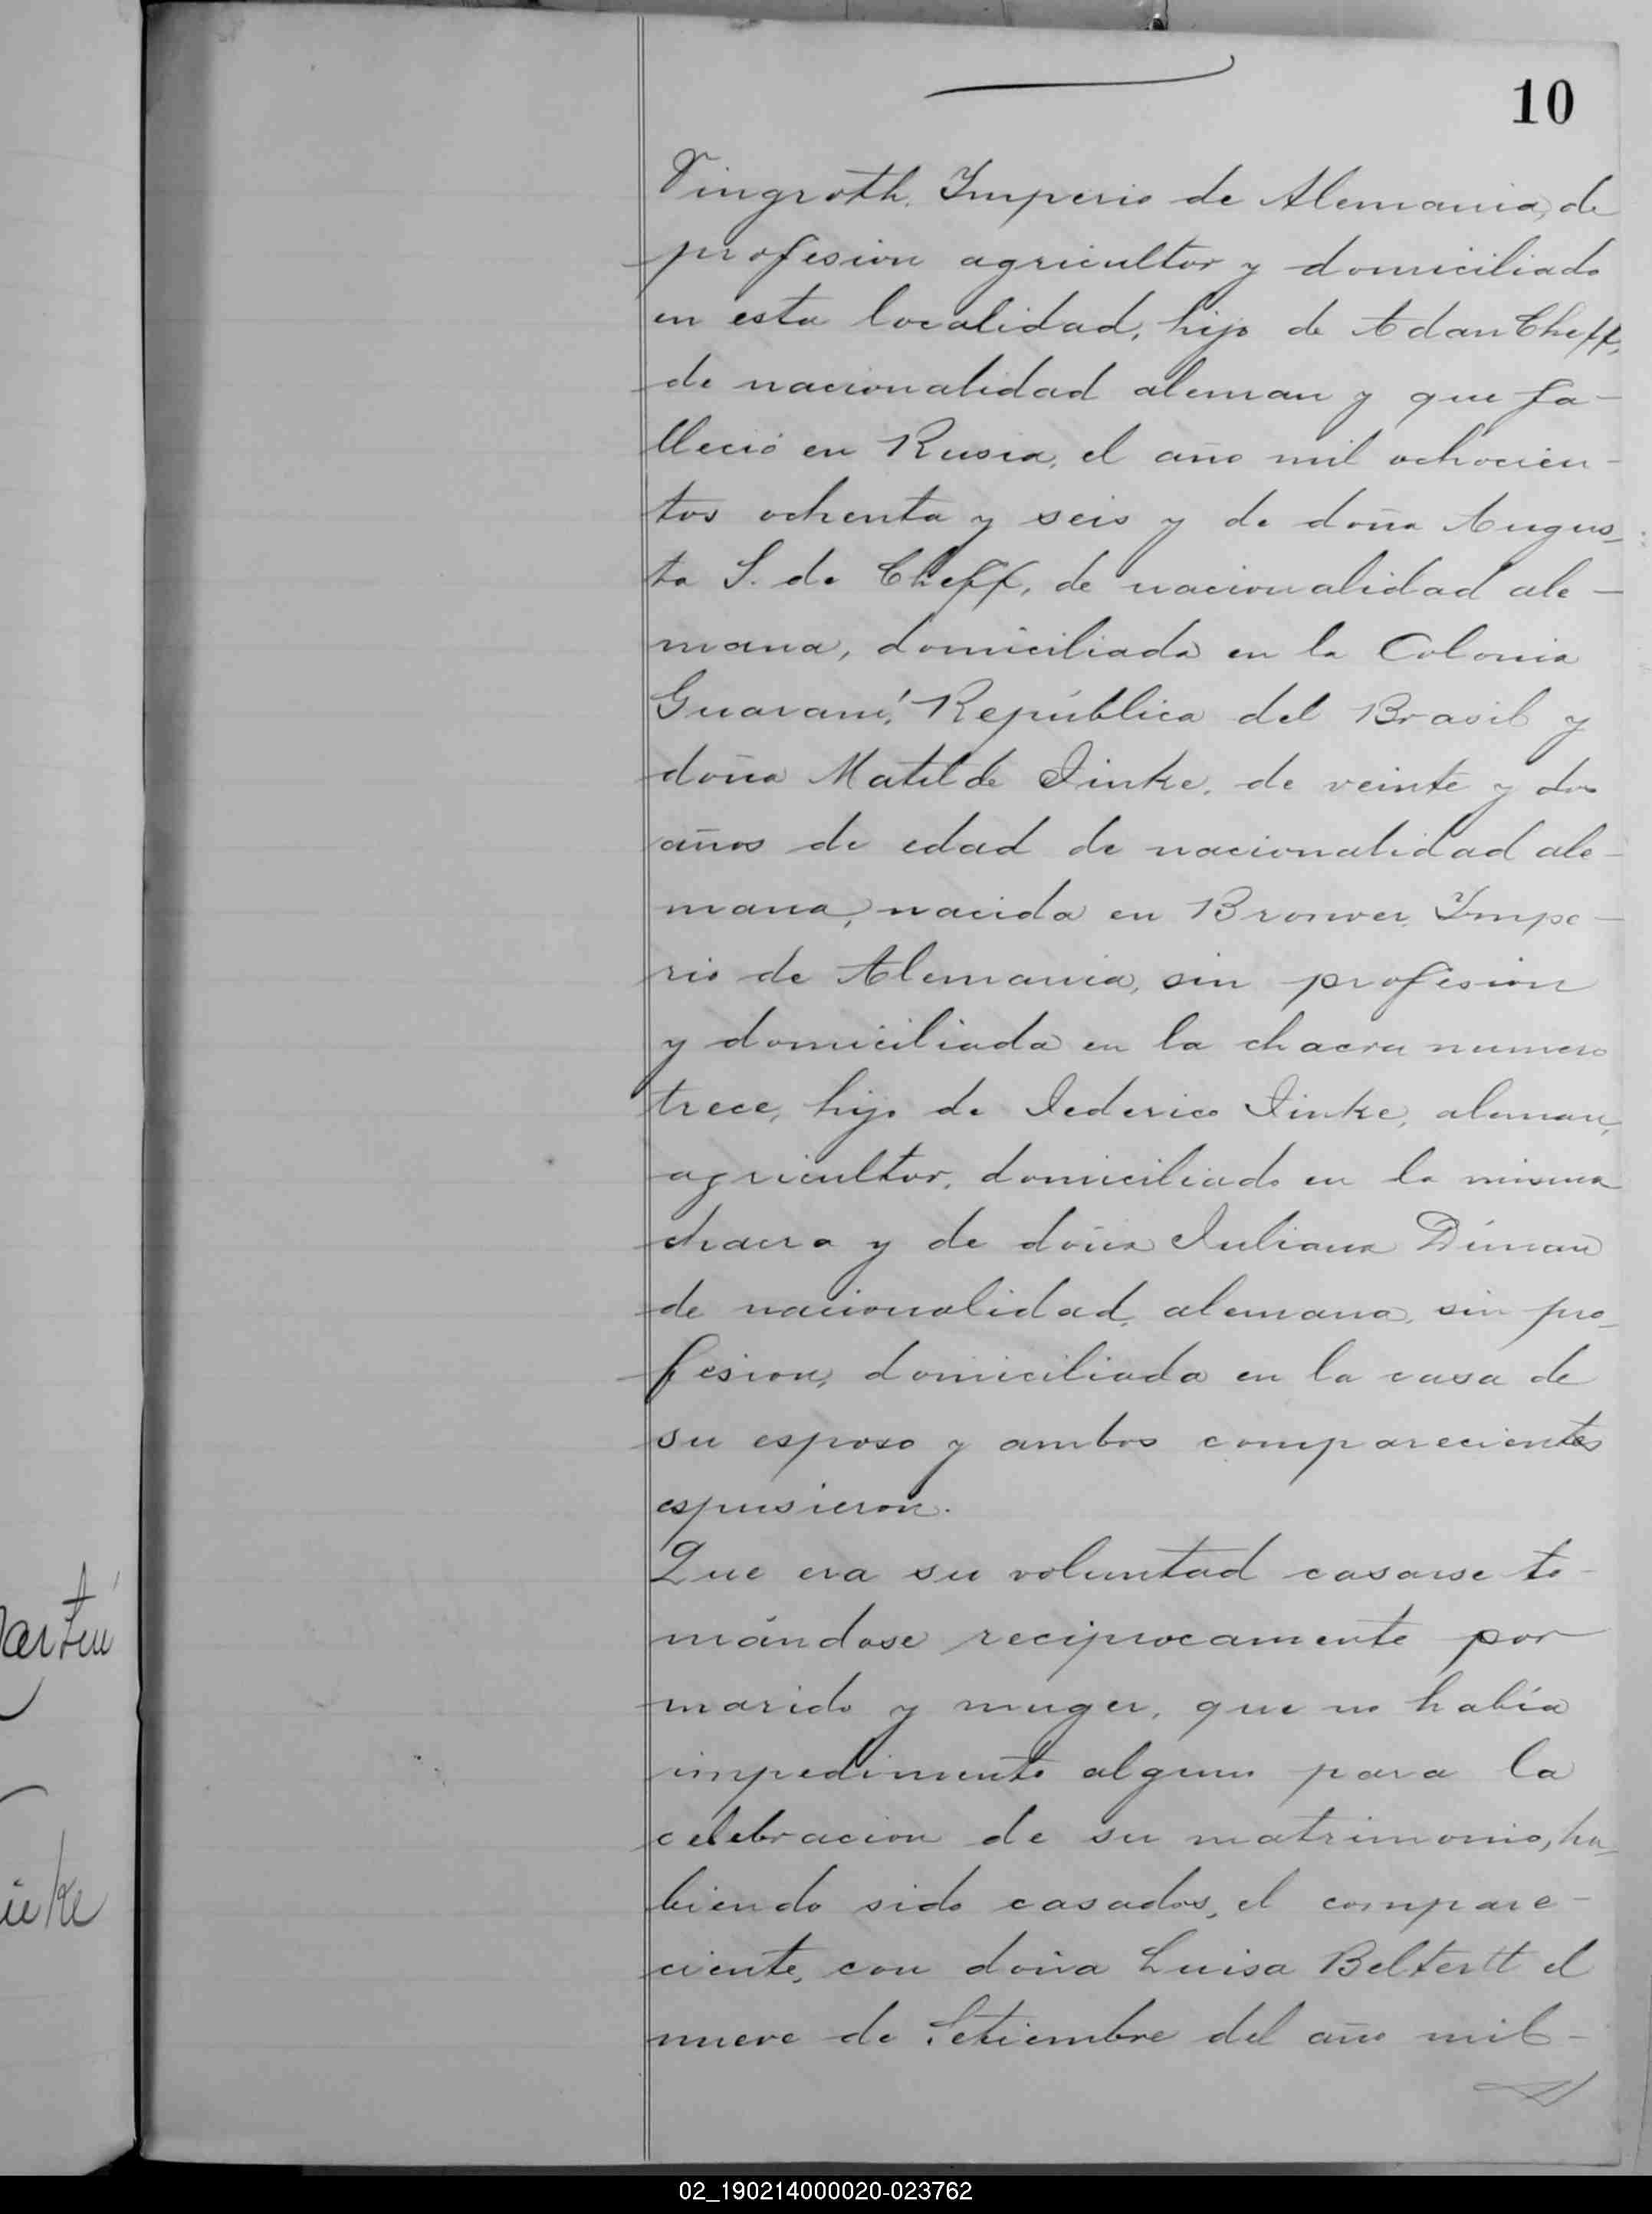 10
Vingroth, Imperio de Alemania, de
profesion agricultor y domiciliado
en esta localidad, hijo de Adan Cheff,
de nacionalidad aleman y que fa-
lleció en Rusia, el año mil ochocien-
tos ochenta y seis y de doña Augus-
ta S. de Cheff, de nacionalidad ale-
mana, domiciliada en la Colonia
Guaraní, República del Brasil y
doña Matilde Finke, de veinte y dos
años de edad de nacionalidad ale-
mana, nacida en Bronwer, Impe-
rio de Alemania, sin profesion
y domiciliada en la chacra numero
trece, hijo de Federico Finke, aleman,
agricultor, domiciliado en la misma
chacra y de doña Juliana Diman
de nacionalidad alemana, sin pro-
fesion, domiciliada en la casa de
su esposo y ambos comparecientes
espusieron.
Que era su voluntad casarse to-
mándose reciprocamente por
marido y muger, que no había
impedimento alguno para la
celebracion de su matrimonio, ha-
biendo sido casados, el compare-
ciente, con doña Luisa Beltertt el
nueve de Setiembre del año mil-
02_190214000020-023762